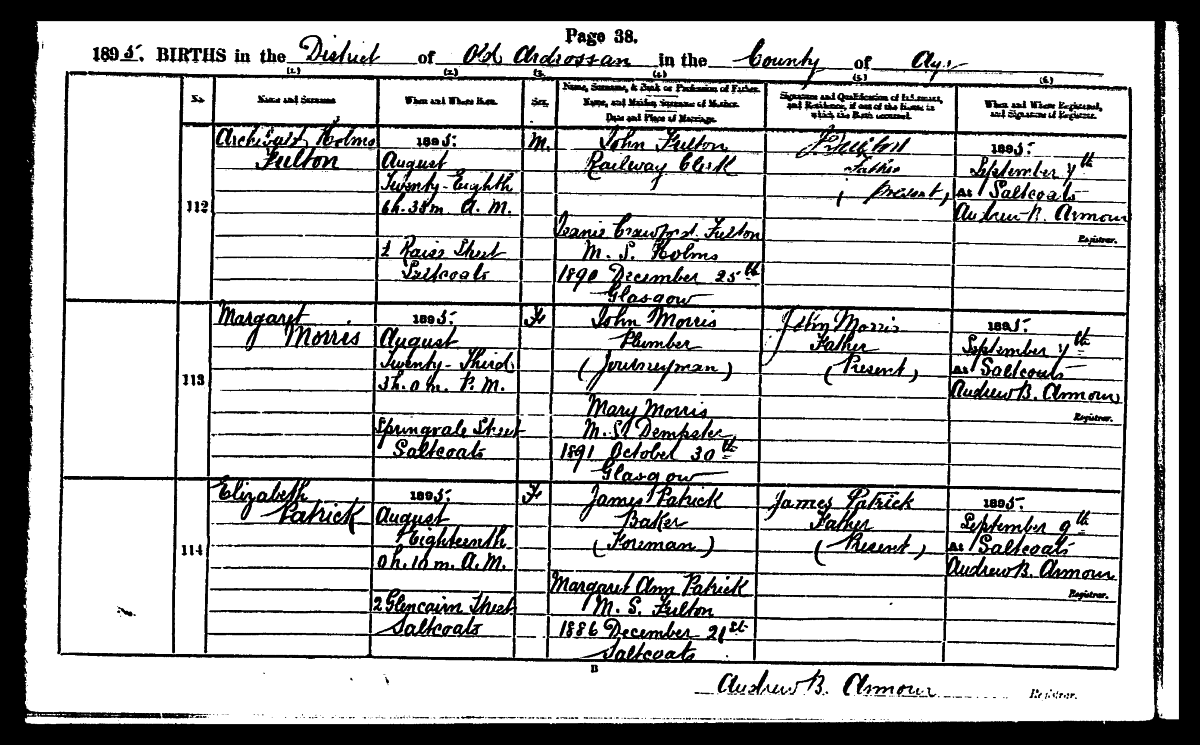 Page 38.
1895. BIRTHS in the District of Old Ardrossan in the County of Ayr
(1.) (2.) (3.) (4.) (5.) (6.)
No. Name and Surname. When and Where Born. Sex. Name, Surname, & Rank or Profession of Father. Name, and Maiden Surname of Mother. Date and Place of Marriage. Signature and Qualification of Informant, and Residence, if out of the House in which the Birth occurred. When and Where Registered, and Signature of Registrar.
112
Archibald Holms
Fulton
1895.
August
Twenty-Eighth
6h. 38m. A.M.
Raise Street
Saltcoats
M.
John Fulton
Railway Clerk
Jeanie Crawford Fulton
M. S. Holms
1890 December 25th
Glasgow
Father
( Present )
1895.
September 7th
At Saltcoats
Andrew B. Armour
Registrar.
113
Margaret
Morris
1895.
August
Twenty-Third
3h. 0m. P.M.
Springvale Street
Saltcoats
F.
John Morris
Plumber
(Journeyman)
Mary Morris
M.S. Dempster
1891 October 30th
Glasgow
John Morris
Father
(Present)
1895.
September 7th
At Saltcoats
Andrew B. Armour
Registrar.
114
Elizabeth
Patrick
1895.
August
Eighteenth
0h. 10m. A.M.
2 Glencairn Street
Saltcoats
F.
James Patrick
Baker
(Foreman)
Margaret Ann Patrick
M. S. Fulton
1886 December 21st
Saltcoats
James Patrick
Father
(Present)
1895.
September 9th
At Saltcoats
Andrew B. Armour
Registrar.
B
Andrew B. Armour Registrar.